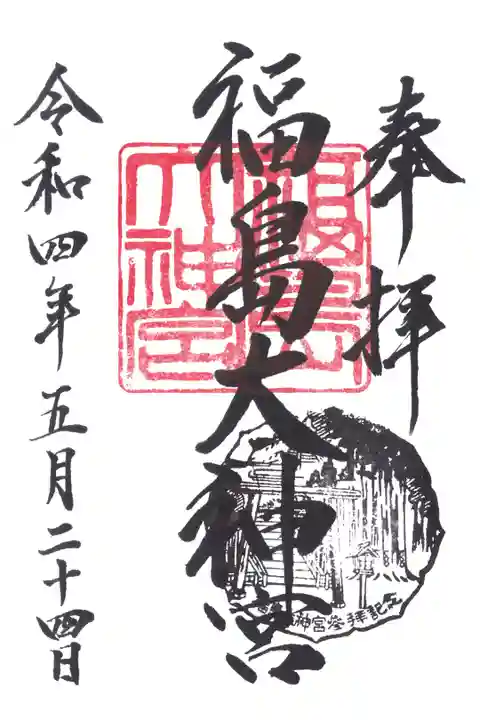 奉拝
福島大神宮
令和四年五月二十四日
福島
大神宮
神宮参拝記念